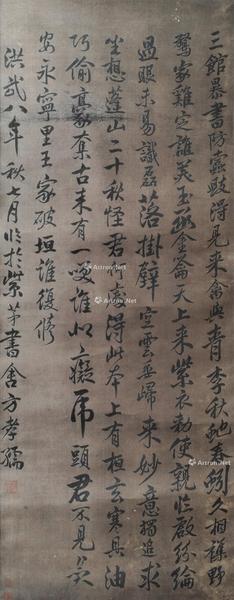 三館暴書防蠹毀得見來禽與青李秋虵春蚓久相雜野
鶩家雞定誰美玉函金籥天上來紫衣勅使親臨啟紛綸
過眼未易識磊落掛壁空雲委歸來妙意獨追求
坐想蓬山二十秋怪君何處得此本上有桓玄寒具油
巧偷豪奪古來有一笑誰似癡虎頭君不見長
安永寧里王家破垣誰復修
洪武八年秋七月臨於紫茅書舍方孝孺
Artron.Net